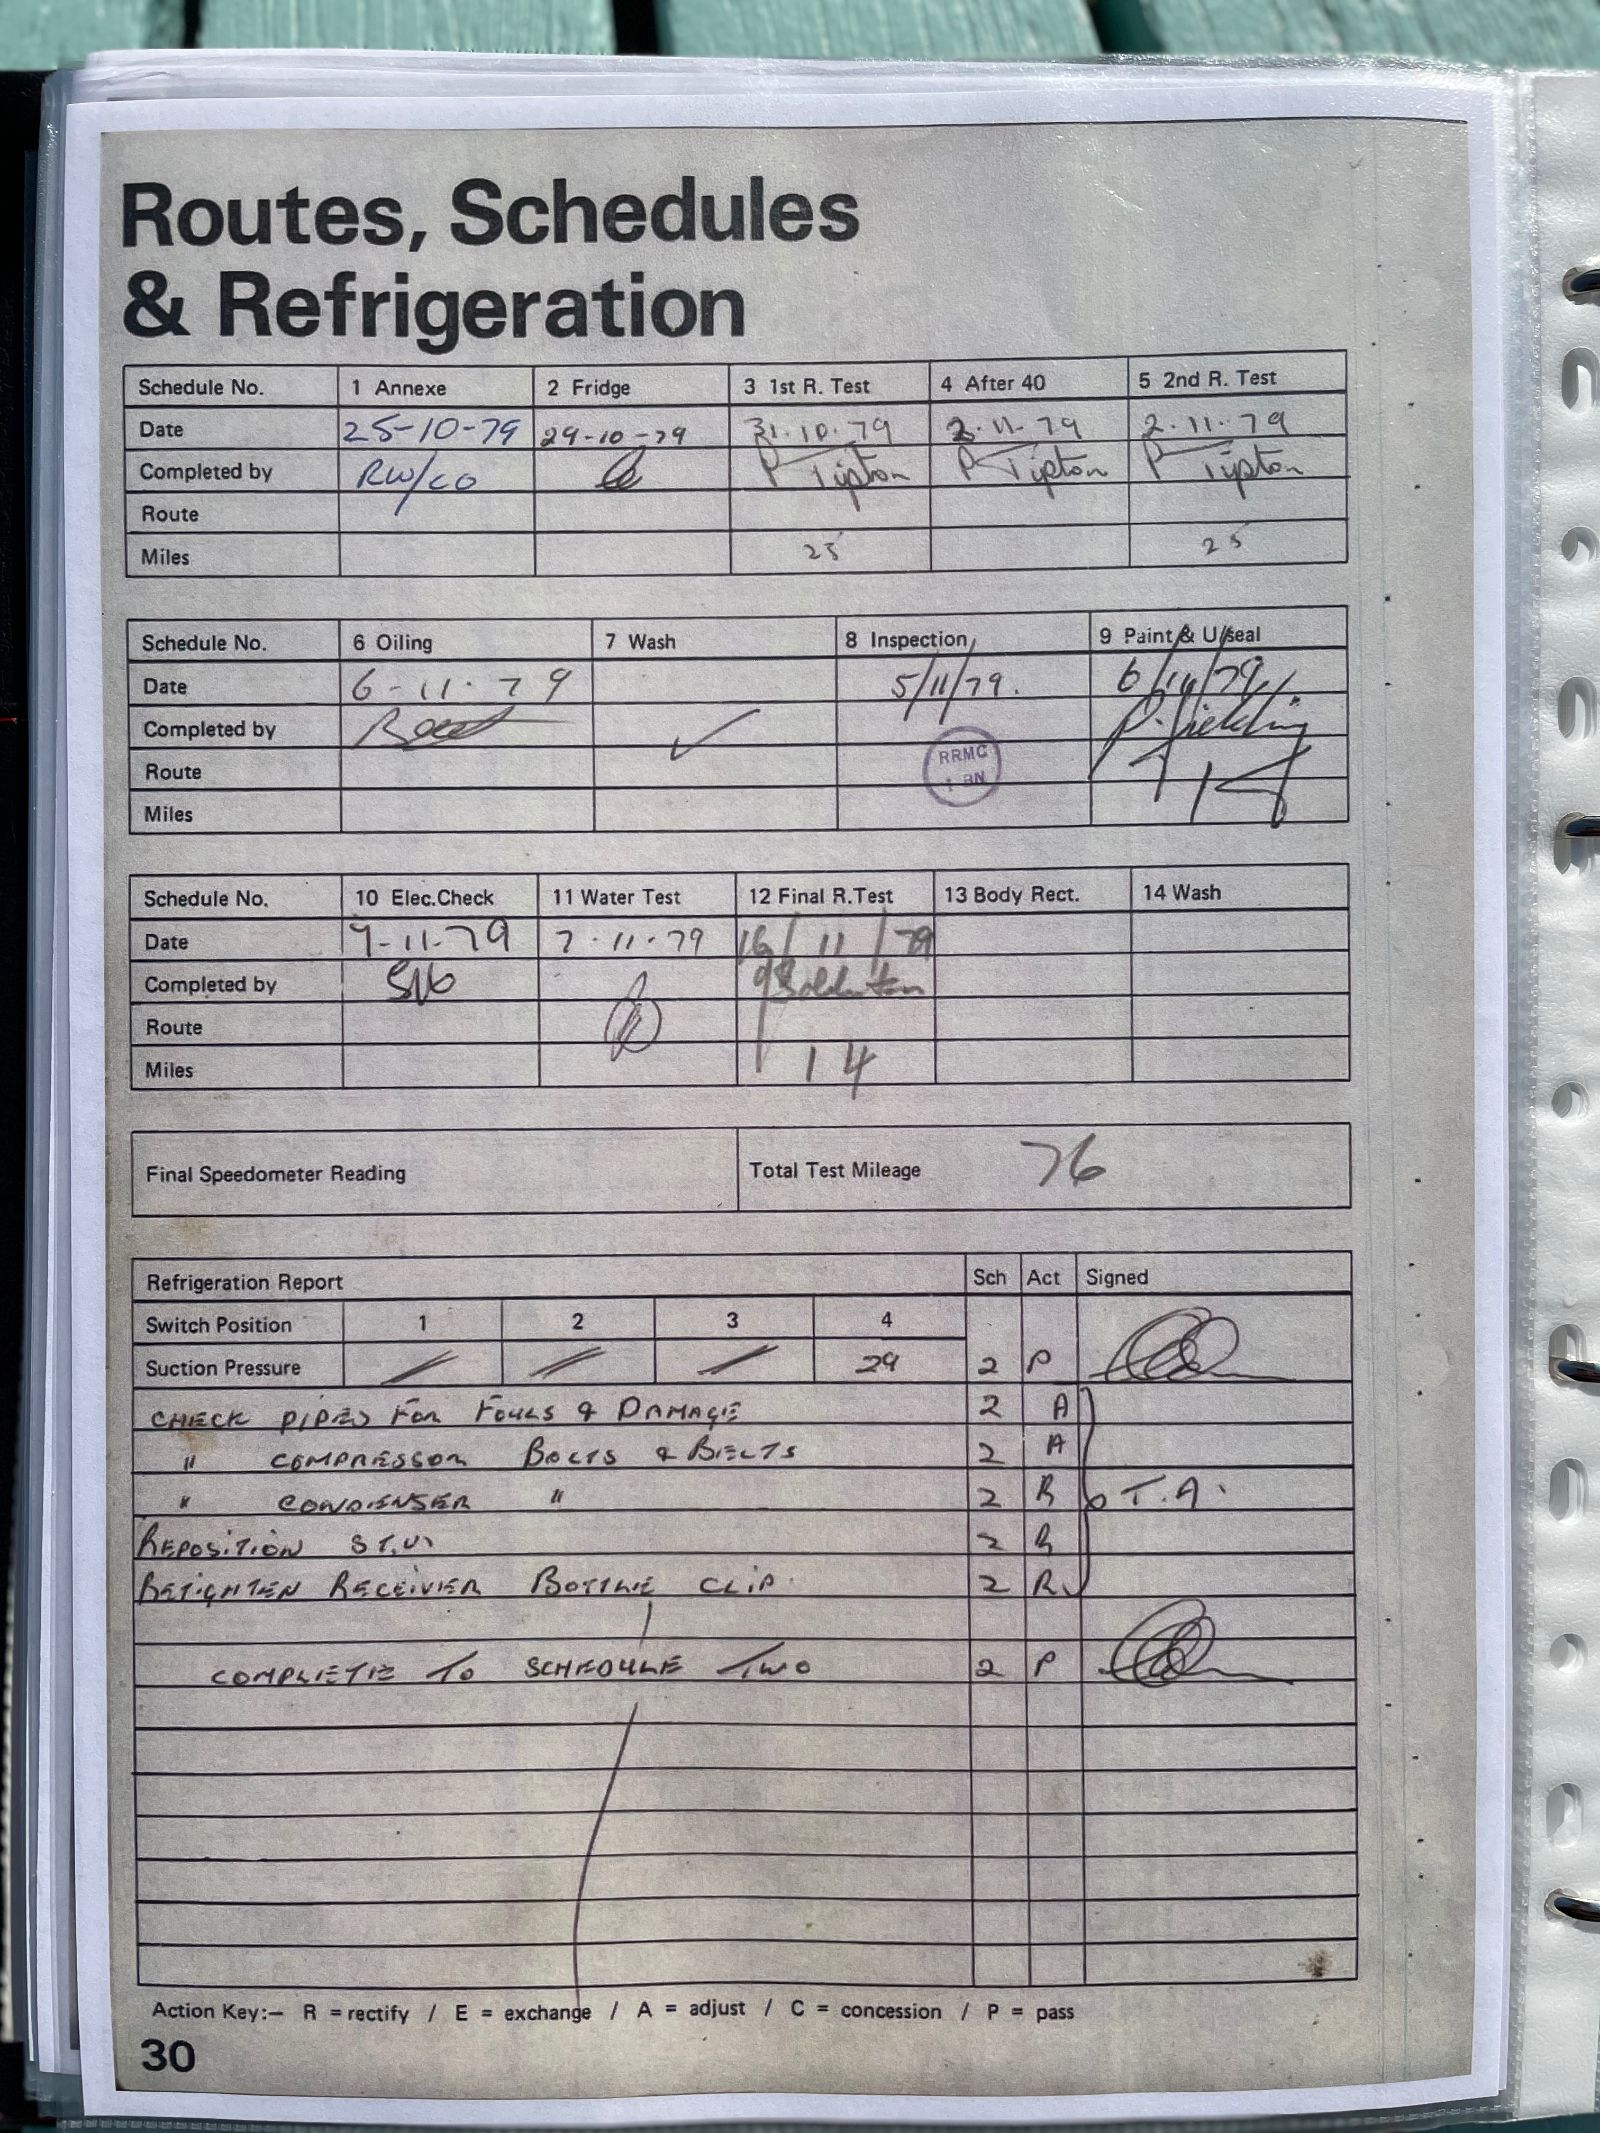 Routes, Schedules
& Refrigeration
Schedule No. 1 Annexe 2 Fridge 3 1st R. Test 4 After 40 5 2nd R. Test
Date 25-10-79 29-10-79 31.10.79 2.11.79 2.11.79
Completed by RW/CO P Tipton P Tipton P Tipton
Route
Miles 25 25
Schedule No. 6 Oiling 7 Wash 8 Inspection 9 Paint & U/seal
Date 6-11.79 5/11/79. 6/11/79
Completed by ✓ P. Fielding
Route RRMC
Miles 1 BN 14
Schedule No. 10 Elec.Check 11 Water Test 12 Final R.Test 13 Body Rect. 14 Wash
Date 7-11-79 7.11.79 16/11/79
Completed by
Route
Miles 14
Final Speedometer Reading Total Test Mileage 76
Refrigeration Report Sch Act Signed
Switch Position 1 2 3 4
Suction Pressure / / / 29 2 P
CHECK PIPES FOR FOULS & DAMAGE 2 A
" COMPRESSOR BOLTS & BELTS 2 A
" CONDENSER " 2 R T.A.
REPOSITION 2 R
RETIGHTEN RECEIVER BOTTLE CLIP. 2 R
COMPLETE TO SCHEDULE TWO 2 P
Action Key:— R = rectify / E = exchange / A = adjust / C = concession / P = pass
30